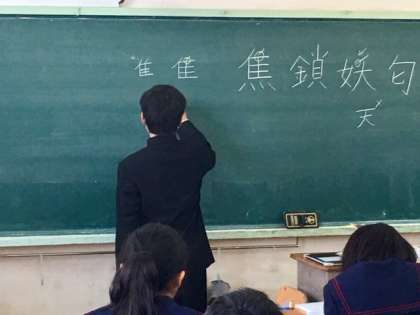 隹 隹 焦 鎖 妖 匂
夭